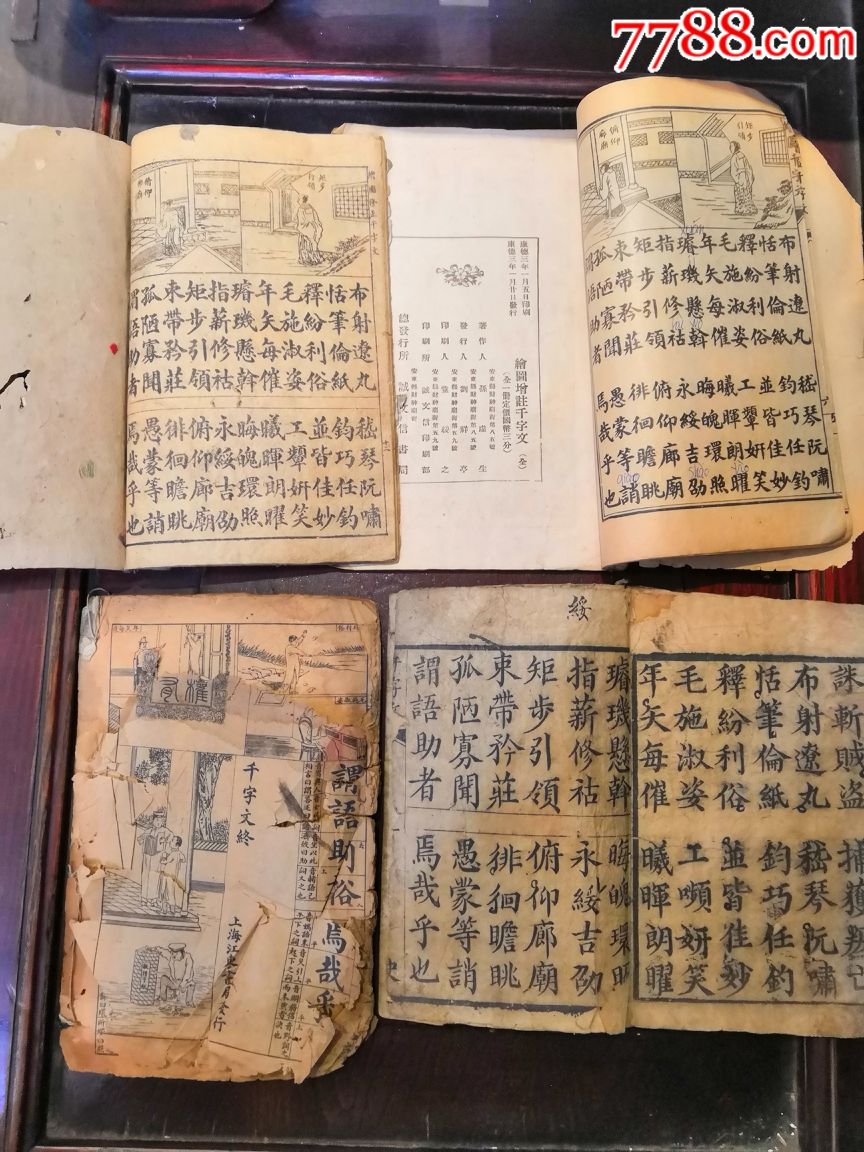 7788.com
繪圖增註千字文
矩步
引領
俯仰
廊廟
布射遼丸
恬筆倫紙
釋紛利俗
毛施淑姿
年矢每催
璿璣懸斡
指薪修祜
矩步引領
束帶矜莊
孤陋寡聞
謂語助者
嵇琴阮嘯
鈞巧任釣
並皆佳妙
工顰妍笑
曦暉朗曜
晦魄環照
永綏吉劭
俯仰廊廟
徘徊瞻眺
愚蒙等誚
焉哉乎也
康德三年一月五日印刷
康德三年一月廿日發行
繪圖增註千字文（全）
（全一冊定價國幣三分）
著作人
發行人
印刷人
印刷所 誠文信印刷部
總發行所 誠文信書局
矩步
引領
俯仰
廊廟
布射遼丸
恬筆倫紙
釋紛利俗
毛施淑姿
年矢每催
璿璣懸斡
指薪修祜
矩步引領
束帶矜莊
孤陋寡聞
謂語助者
嵇琴阮嘯
鈞巧任釣
並皆佳妙
工顰妍笑
曦暉朗曜
晦魄環照
永綏吉劭
俯仰廊廟
徘徊瞻眺
愚蒙等誚
焉哉乎也
謂語助
焉哉乎
千字文終
綏
誅斬賊盜
布射遼丸
恬筆倫紙
釋紛利俗
毛施淑姿
年矢每催
璿璣懸斡
指薪修祜
矩步引領
束帶矜莊
孤陋寡聞
謂語助者
捕獲叛亡
嵇琴阮嘯
鈞巧任釣
並皆佳妙
工嚬妍笑
曦暉朗曜
晦魄環照
永綏吉劭
俯仰廊廟
徘徊瞻眺
愚蒙等誚
焉哉乎也